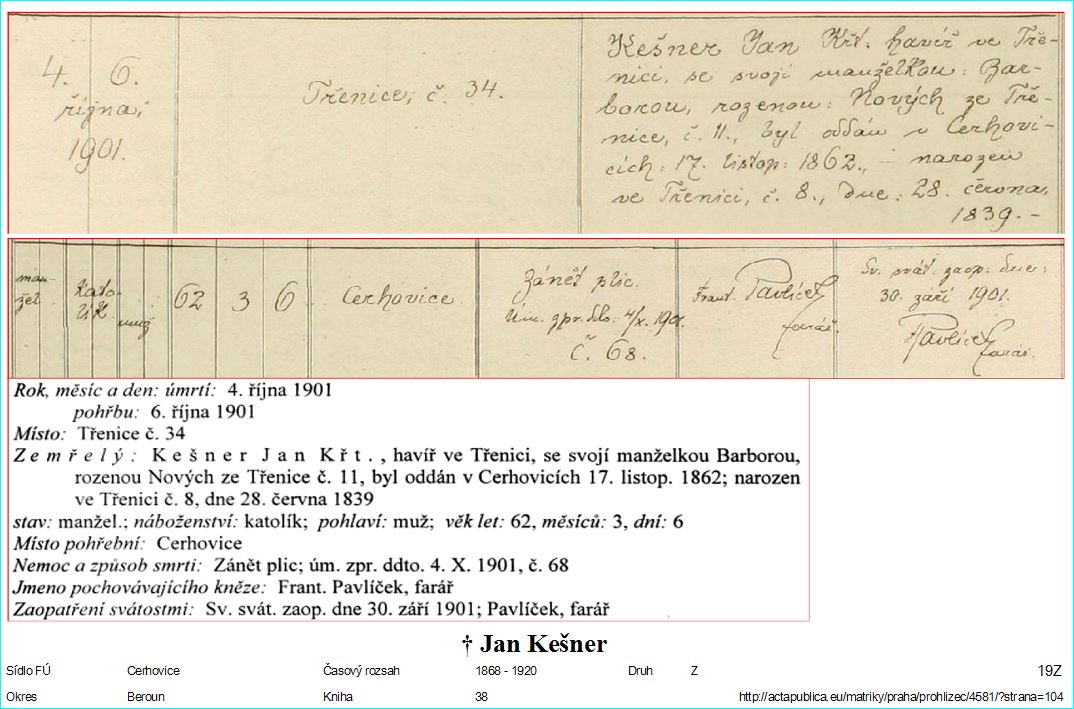 4. 6.
října,
1901.
Třenice, č. 34.
Kešner Jan Křt. havíř ve Tře-
nici, se svojí manželkou: Bar-
borou, rozenou: Nových ze Tře-
nice, č. 11., byl oddán v Cerhovi-
cích: 17. listop: 1862., – narozen
ve Třenici, č. 8., dne: 28. června,
1839. –
man-
žel.
kato-
lík
muž
62 3 6
Cerhovice.
Zánět plic.
Úm. zpr. ddto. 4/X. 1901.
č. 68.
Frant. Pavlíček
farář.
Sv. svát. zaop: dne:
30. září 1901.
Pavlíček
farář.
Rok, měsíc a den: úmrtí: 4. října 1901
pohřbu: 6. října 1901
Místo: Třenice č. 34
Zemřelý: Kešner Jan Křt., havíř ve Třenici, se svojí manželkou Barborou,
rozenou Nových ze Třenice č. 11, byl oddán v Cerhovicích 17. listop. 1862; narozen
ve Třenici č. 8, dne 28. června 1839
stav: manžel.; náboženství: katolík; pohlaví: muž; věk let: 62, měsíců: 3, dní: 6
Místo pohřební: Cerhovice
Nemoc a způsob smrti: Zánět plic; úm. zpr. ddto. 4. X. 1901, č. 68
Jmeno pochovávajícího kněze: Frant. Pavlíček, farář
Zaopatření svátostmi: Sv. svát. zaop. dne 30. září 1901; Pavlíček, farář
† Jan Kešner
Sídlo FÚ Cerhovice Časový rozsah 1868 - 1920 Druh Z 19Z
Okres Beroun Kniha 38 http://actapublica.eu/matriky/praha/prohlizec/4581/?strana=104